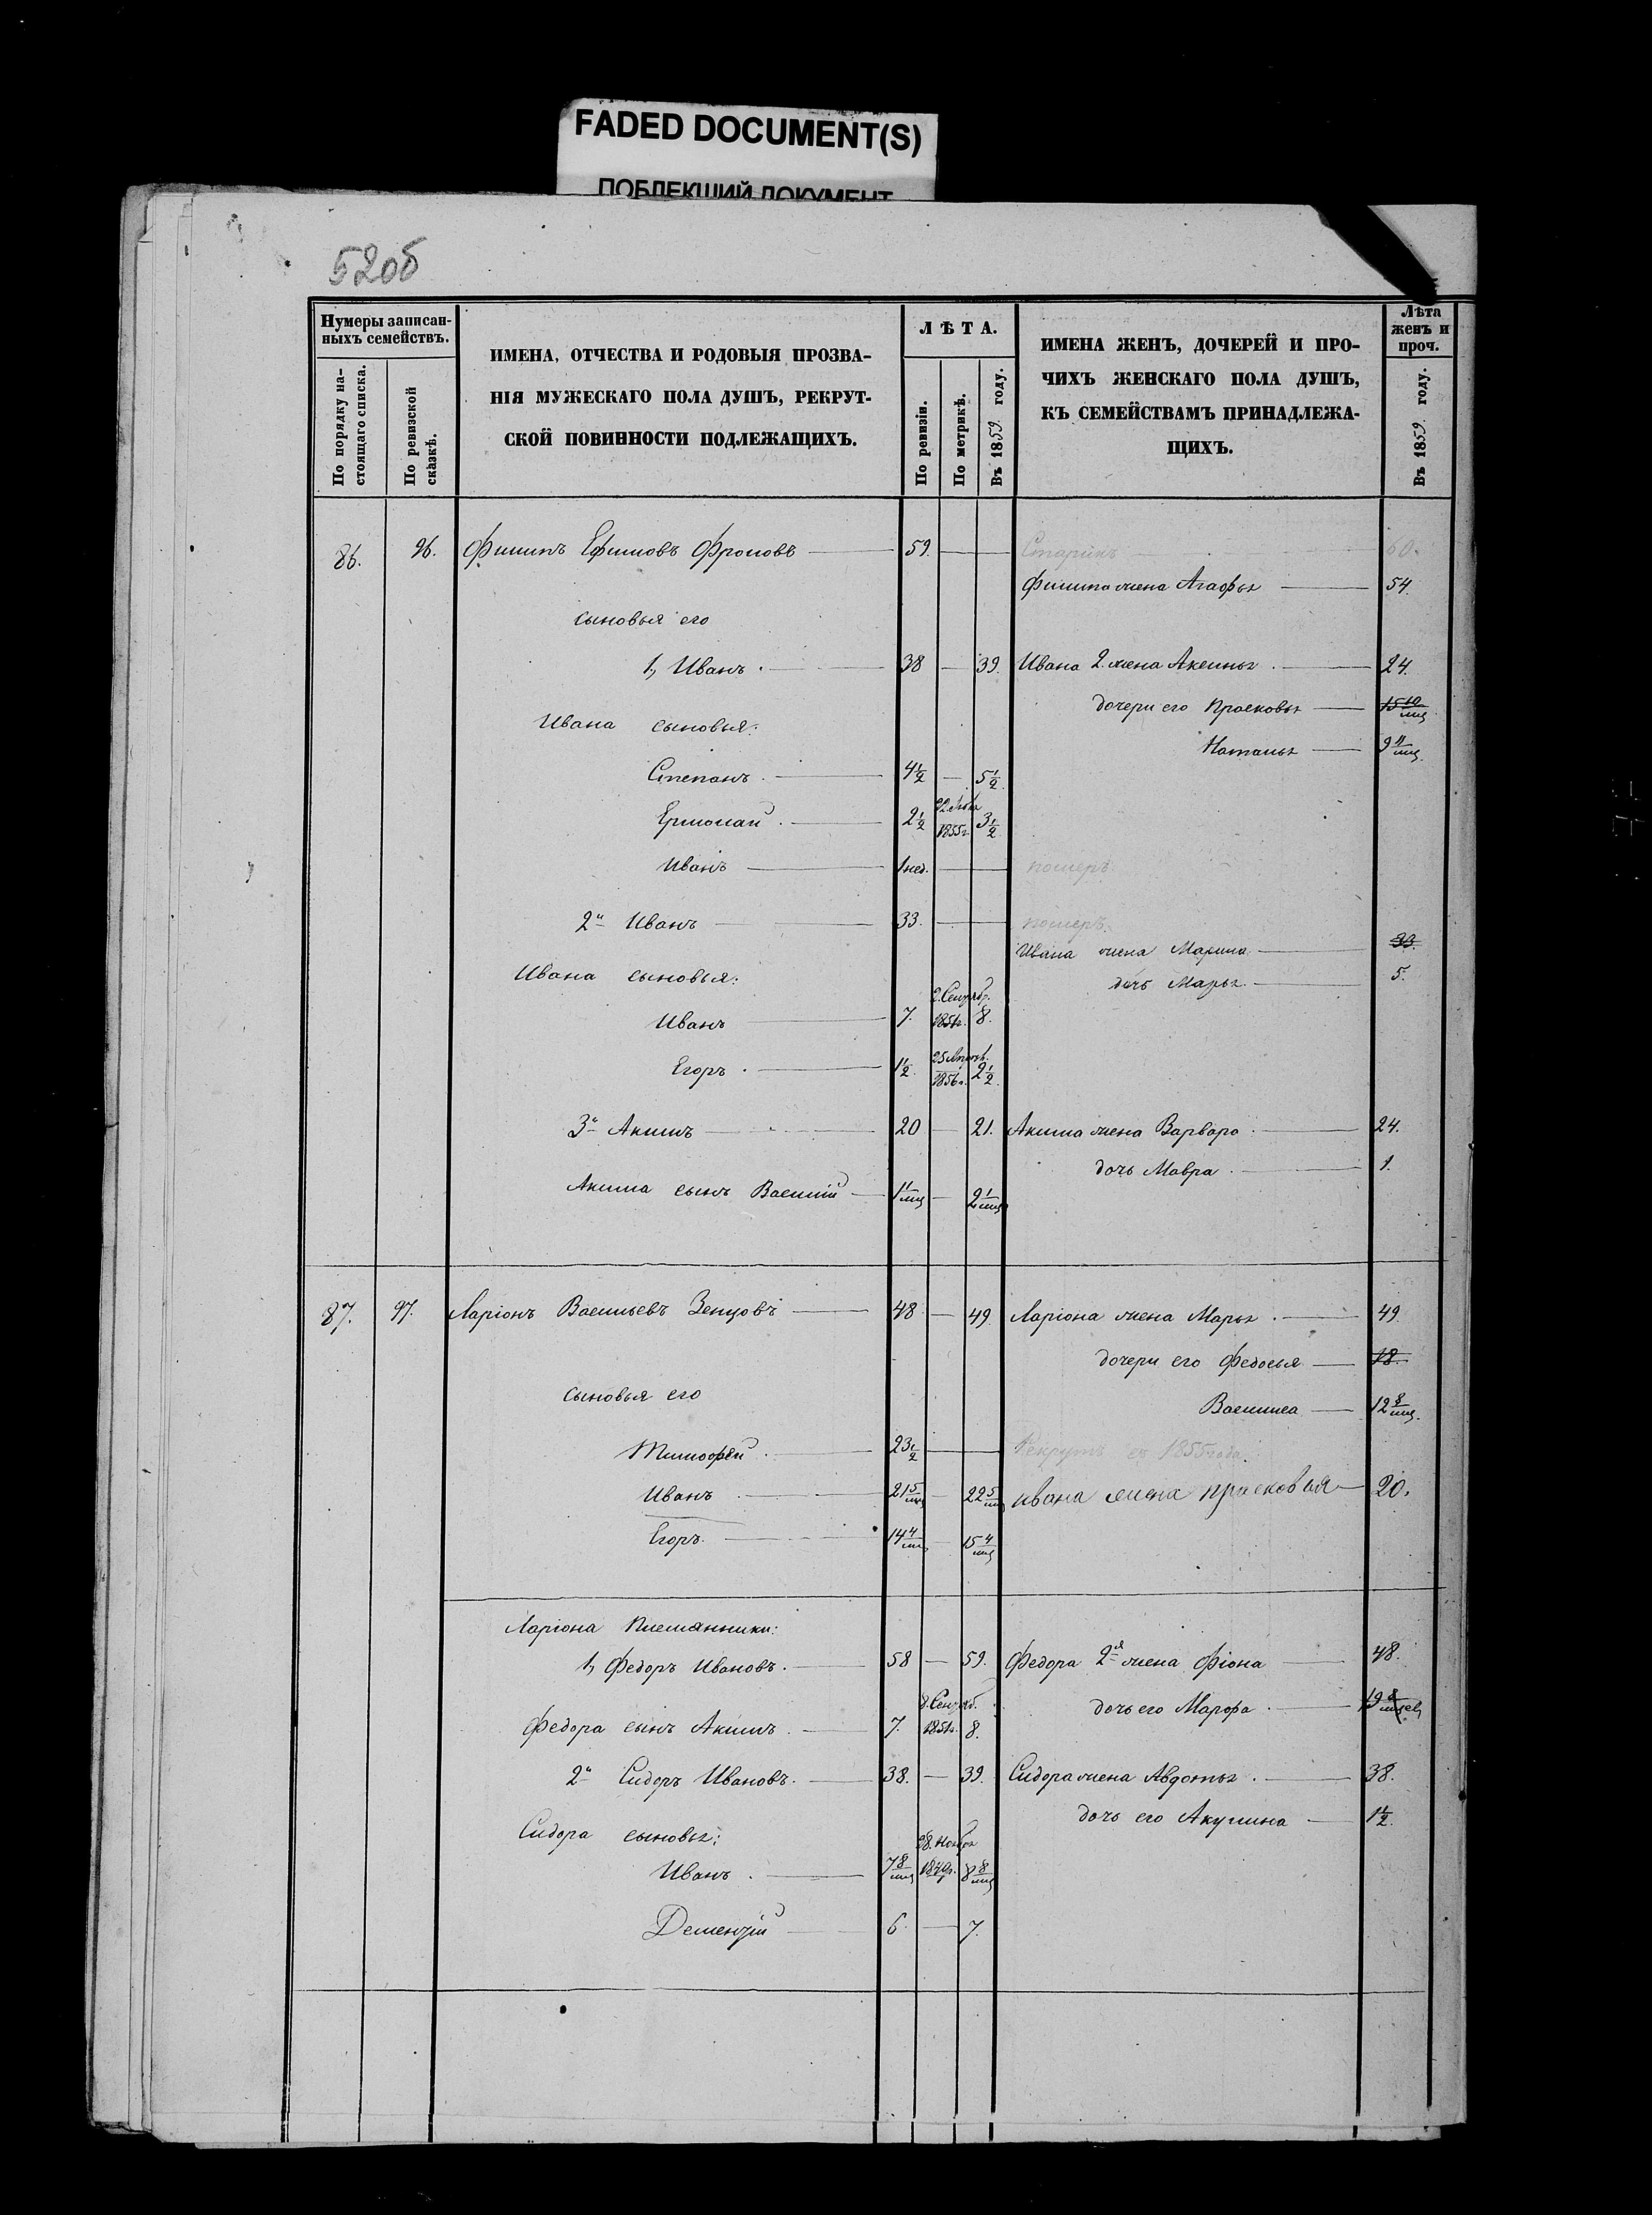 FADED DOCUMENT(S)
ПОБЛЕКШИЙ ДОКУМЕНТ
52об
Нумеры записан-
ныхъ семействъ.
По порядку на-
стоящаго списка.
По ревизской
сказкѣ.
ИМЕНА, ОТЧЕСТВА И РОДОВЫЯ ПРОЗВА-
НІЯ МУЖЕСКАГО ПОЛА ДУШЪ, РЕКРУТ-
СКОЙ ПОВИННОСТИ ПОДЛЕЖАЩИХЪ.
ЛѢТА.
По ревизіи.
По метрикѣ.
Въ 1859 году.
ИМЕНА ЖЕНЪ, ДОЧЕРЕЙ И ПРО-
ЧИХЪ ЖЕНСКАГО ПОЛА ДУШЪ,
КЪ СЕМЕЙСТВАМЪ ПРИНАДЛЕЖА-
ЩИХЪ.
Лѣта
женъ и
проч.
Въ 1859 году.
86. 96. Филипъ Ефимовъ Фроловъ — 59. — — Старикъ — 60.
Филипа жена Агафья — 54.
сыновья его
1, Иванъ. — 38 — 39. Ивана 2. жена Аксинья. — 24.
дочери его Прасковья — 15 10/мц
Ивана сыновья:
Наталья — 9 11/мц.
Степанъ. — 4½ — 5½.
Ермолай. — 2½ 1855г. 3½
Иванъ — 1 нед. — — померъ.
2й Иванъ — 33. — — померъ.
Ивана жена Марина — 33.
Ивана сыновья:
дочь Марья. — 5.
Иванъ — 7. 2. Сентябр. 1851г. 8.
Егоръ. — 1½. 25 Апрѣл. 1856г. 2½.
3й Акимъ — 20 — 21. Акима жена Варвара. — 24.
дочь Мавра. — 1.
Акима сынъ Василій — 1 1/мц — 2 1/мц
87. 97. Ларіонъ Васильевъ Зенцовъ — 48 — 49. Ларіона жена Марья. — 49.
дочери его Федосья — 18.
сыновья его
Василиса — 12 8/мц.
Тимофѣй. — 23½ — — Рекрутъ съ 1855 года.
Иванъ — 21 5/мц — 22 5/мц ивана жена прасковья — 20.
Егоръ. — 14 4/мц — 15 4/мц
Ларіона племянники:
1, Федоръ Ивановъ. — 58 — 59. Федора 2я жена Фіона — 48.
дочь его Марфа. — 19
Федора сынъ Акимъ. — 7. 8. Сентяб. 1851г. 8.
2й Сидоръ Ивановъ. — 38. — 39. Сидора жена Авдотья. — 38.
дочь его Акулина — 1½.
Сидора сыновья:
Иванъ. — 7 8/мц 28. Ноября 8 8/мц
Дементій — 6. — 7.